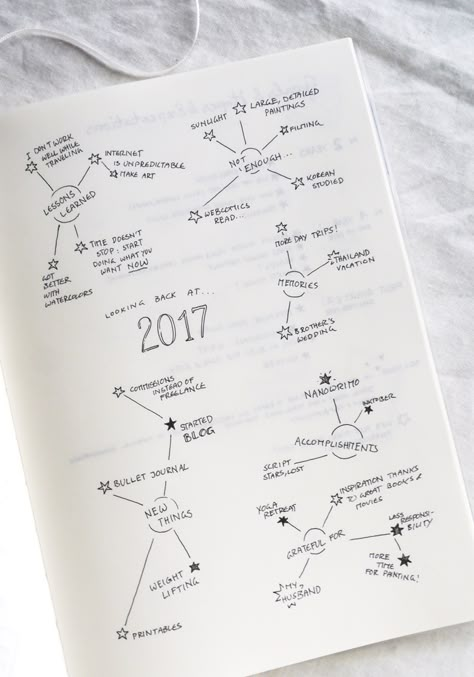 I DON'T WORK
WELL WHILE
TRAVELLING
INTERNET
IS UNPREDICTABLE
MAKE ART
LESSONS
LEARNED
TIME DOESN'T
STOP: START
DOING WHAT YOU
WANT NOW
GOT
BETTER
WITH
WATERCOLORS
SUNLIGHT
LARGE, DETAILED
PAINTINGS
FILMING
NOT
ENOUGH...
KOREAN
STUDIED
WEBCOMICS
READ...
MORE DAY TRIPS!
THAILAND
VACATION
MEMORIES
BROTHER'S
WEDDING
LOOKING BACK AT...
2017
COMMISSIONS
INSTEAD OF
FREELANCE
STARTED
BLOG
BULLET JOURNAL
NEW
THINGS
WEIGHT
LIFTING
PRINTABLES
NANOWRIMO
INKTOBER
ACCOMPLISHMENTS
SCRIPT
STARS, LOST
INSPIRATION THANKS
TO GREAT BOOKS &
MOVIES
YOGA
RETREAT
LESS
RESPONSI-
BILITY
GRATEFUL FOR
MORE
TIME
FOR PAINTING!
MY
HUSBAND